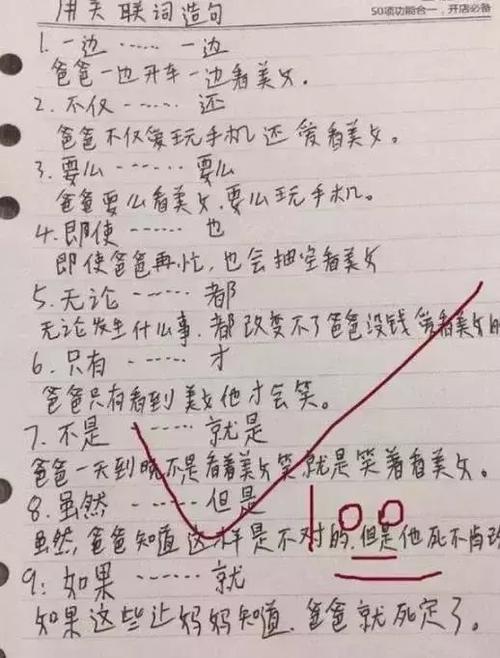 用关联词造句
50项功能合一，开店必备
1. 一边 …… 一边
爸爸一边开车一边看美女.
2. 不仅 …… 还
爸爸不仅爱玩手机还爱看美女。
3. 要么 …… 要么
爸爸要么看美女.要么玩手机。
4. 即使 …… 也
即使爸爸再忙，也会抽空看美女
5. 无论 …… 都
无论发生什么事.都改变不了爸爸没钱爱看美女的
6. 只有 …… 才
爸爸只有看到美女他才会笑。
7. 不是 …… 就是
爸爸一天到晚不是看着美女笑就是笑着看美女。
8. 虽然 …… 但是
虽然,爸爸知道这样是不对的.但是他死不肯改
100
9: 如果 …… 就
如果这些让妈妈知道.爸爸就死定了。